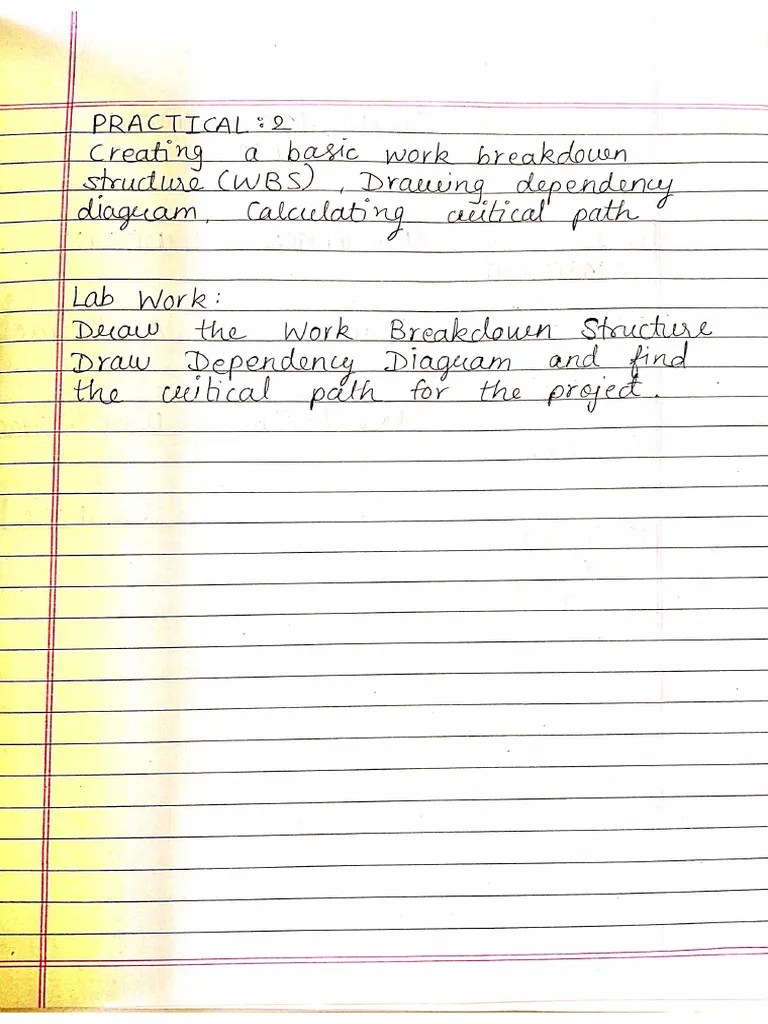 PRACTICAL : 2
Creating a basic work breakdown
structure (WBS) , Drawing dependency
diagram, Calculating critical path
Lab Work :
Draw the Work Breakdown Structure
Draw Dependency Diagram and find
the critical path for the project.